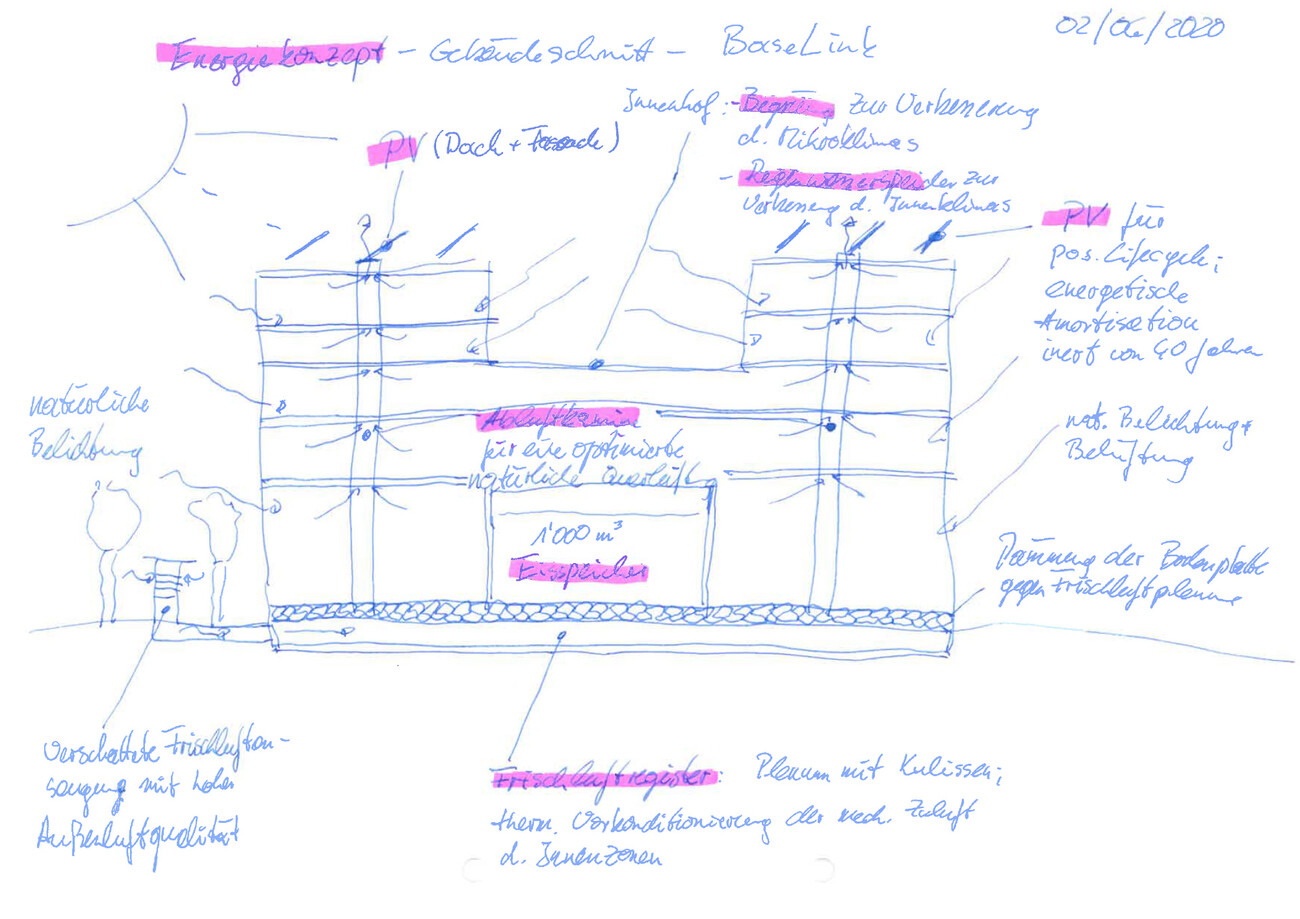 Energiekonzept – Gebäudeschnitt – BaseLink
02/06/2020
PV (Dach + Fassade)
Innenhof: - Begrünung zur Verbesserung
d. Mikroklimas
- Regenwasserspeicher zur
Verbesserung d. Innenklimas
PV für
pos. Lifecycle;
energetische
Amortisation
inert von 40 Jahren
natürliche
Belichtung
Abluftkamin
für eine optimierte
natürliche Querlüft
nat. Belichtung +
Belüftung
1'000 m³
Eisspeicher
Dämmung der Bodenplatte
gegen Frischluftplenum
Verschattete Frischluftan-
saugung mit hoher
Außenluftqualität
Frischluftregister: Plenum mit Kulissen;
therm. Vorkonditionierung der mech. Zuluft
d. Innenzonen